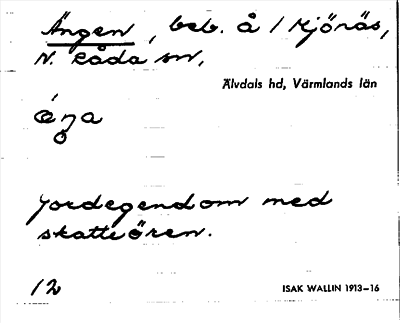 Ängen, beb. å 1 Mjönäs,
N. Råda sn,
Älvdals hd, Värmlands län
Jordegendom med
skatteören.
12
ISAK WALLIN 1913–16